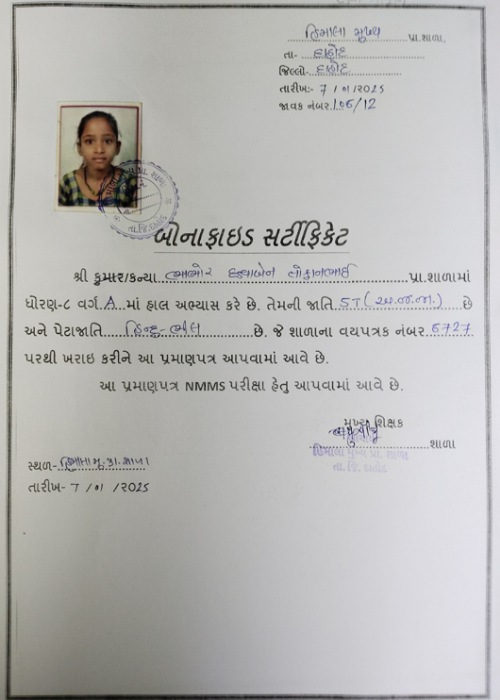 હિમાલા મુખ્ય પ્રા.શાળા.
તા- દાહોદ
જિલ્લો- દાહોદ
તારીખ:- 7/01/2025
જાવક નંબર.106/12
બોનાફાઇડ સર્ટીફિકેટ
શ્રી કુમાર/કન્યા. ભાભોર દિવ્યાબેન પ્રા.શાળામાં
ધોરણ-૮ વર્ગ A માં હાલ અભ્યાસ કરે છે. તેમની જાતિ ST (અ.જ.જા.) છે
અને પેટાજાતિ હિન્દુ-ભીલ છે. જે શાળાના વયપત્રક નંબર 6727
પરથી ખરાઇ કરીને આ પ્રમાણપત્ર આપવામાં આવે છે.
આ પ્રમાણપત્ર NMMS પરીક્ષા હેતુ આપવામાં આવે છે.
મુખ્ય શિક્ષક
શાળા
હિમાલા મુખ્ય પ્રા. શાળા
તા. જિ. દાહોદ
સ્થળ- હિમાલા મુ.પ્રા.શાળા
તારીખ- 7/01/2025